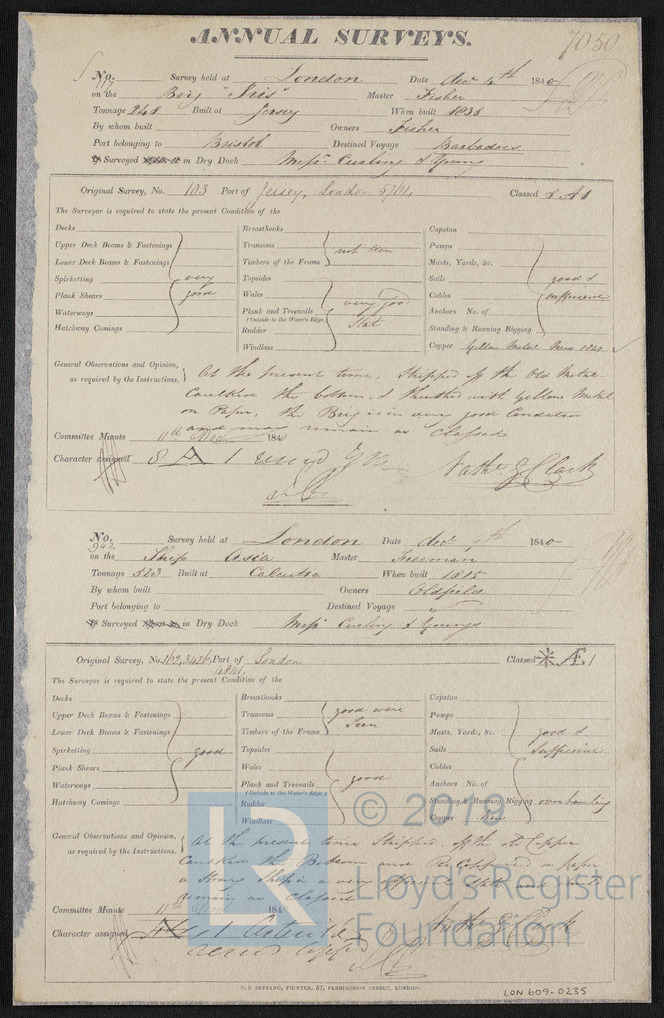 ANNUAL SURVEYS.
7050
No. Survey held at London Date Decr 4th 1840
on the Brig "Iris" Master Fisher
Tonnage 248 Built at Jersey When built 1838
By whom built Owners Fisher
Port belonging to Bristol Destined Voyage Barbadoes
Surveyed in Dry Dock Messrs Curling & Young
Original Survey, No. 103 Port of Jersey, London Classed 8 A 1
The Surveyor is required to state the present Condition of the
Decks
Upper Deck Beams & Fastenings
Lower Deck Beams & Fastenings
Spirketting very
Plank Shears good
Waterways
Hatchway Comings
Breasthooks
Transoms not seen
Timbers of the Frame
Topsides
Wales very good
Plank and Treenails
(Outside to the Water's Edge) State
Rudder
Windlass
Capstan
Pumps
Masts, Yards, &c.
Sails good &
Cables sufficient
Anchors No. of
Standing & Running Rigging
Copper Yellow Metal New 1840
General Observations and Opinion, At the present time, Stripped off the Old Metal
as required by the Instructions. Caulked the bottom & Sheathed with Yellow Metal
on Paper, the Brig is in very good Condition
and may remain as Classed
Committee Minute 11th Decr 1840
Character assigned 8 A 1 Nathl G Clark
No. 942 Survey held at London Date Decr 1840
on the Ship Asia Master Freeman
Tonnage 523 Built at Calcutta When built 1815
By whom built Owners Oldfield
Port belonging to Destined Voyage
Surveyed in Dry Dock Messrs Curling & Youngs
Original Survey, No. Port of London Classed Æ 1
The Surveyor is required to state the present Condition of the
Decks
Upper Deck Beams & Fastenings
Lower Deck Beams & Fastenings
Spirketting good
Plank Shears
Waterways
Hatchway Comings
Breasthooks
Transoms good were
Timbers of the Frame Seen
Topsides
Wales
Plank and Treenails good
(Outside to the Water's Edge)
Rudder
Windlass
Capstan
Pumps
Masts, Yards, &c. good &
Sails Sufficient
Cables
Anchors No. of
Standing & Running Rigging overhauling
Copper New
General Observations and Opinion, At the present time Stripped off the old Copper
as required by the Instructions. Caulked the Bottom and ReCoppered on paper
a Strong Ship in a very State and
remain as Classed
Committee Minute 11th 184
Character assigned Nathl G Clark
© 2019
LR
Lloyd's Register
Foundation
C. F. SEYFANG, PRINTER, 57, FARRINGDON STREET, LONDON.
LON 609-0235